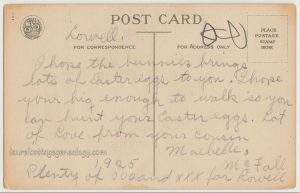 POST CARD
Lowell.
FOR CORRESPONDENCE
FOR ADDRESS ONLY
PLACE
POSTAGE
STAMP
HERE
I hope the bunnies brings
lots of Easter eggs to you. I hope
your big enough to walk so you
can hunt your Easter eggs. Lot
of Love from your cousin
Maebelle
McFall
1925
Plenty of OOO and XXX for Lowell
laurelcottagegenealogy.com